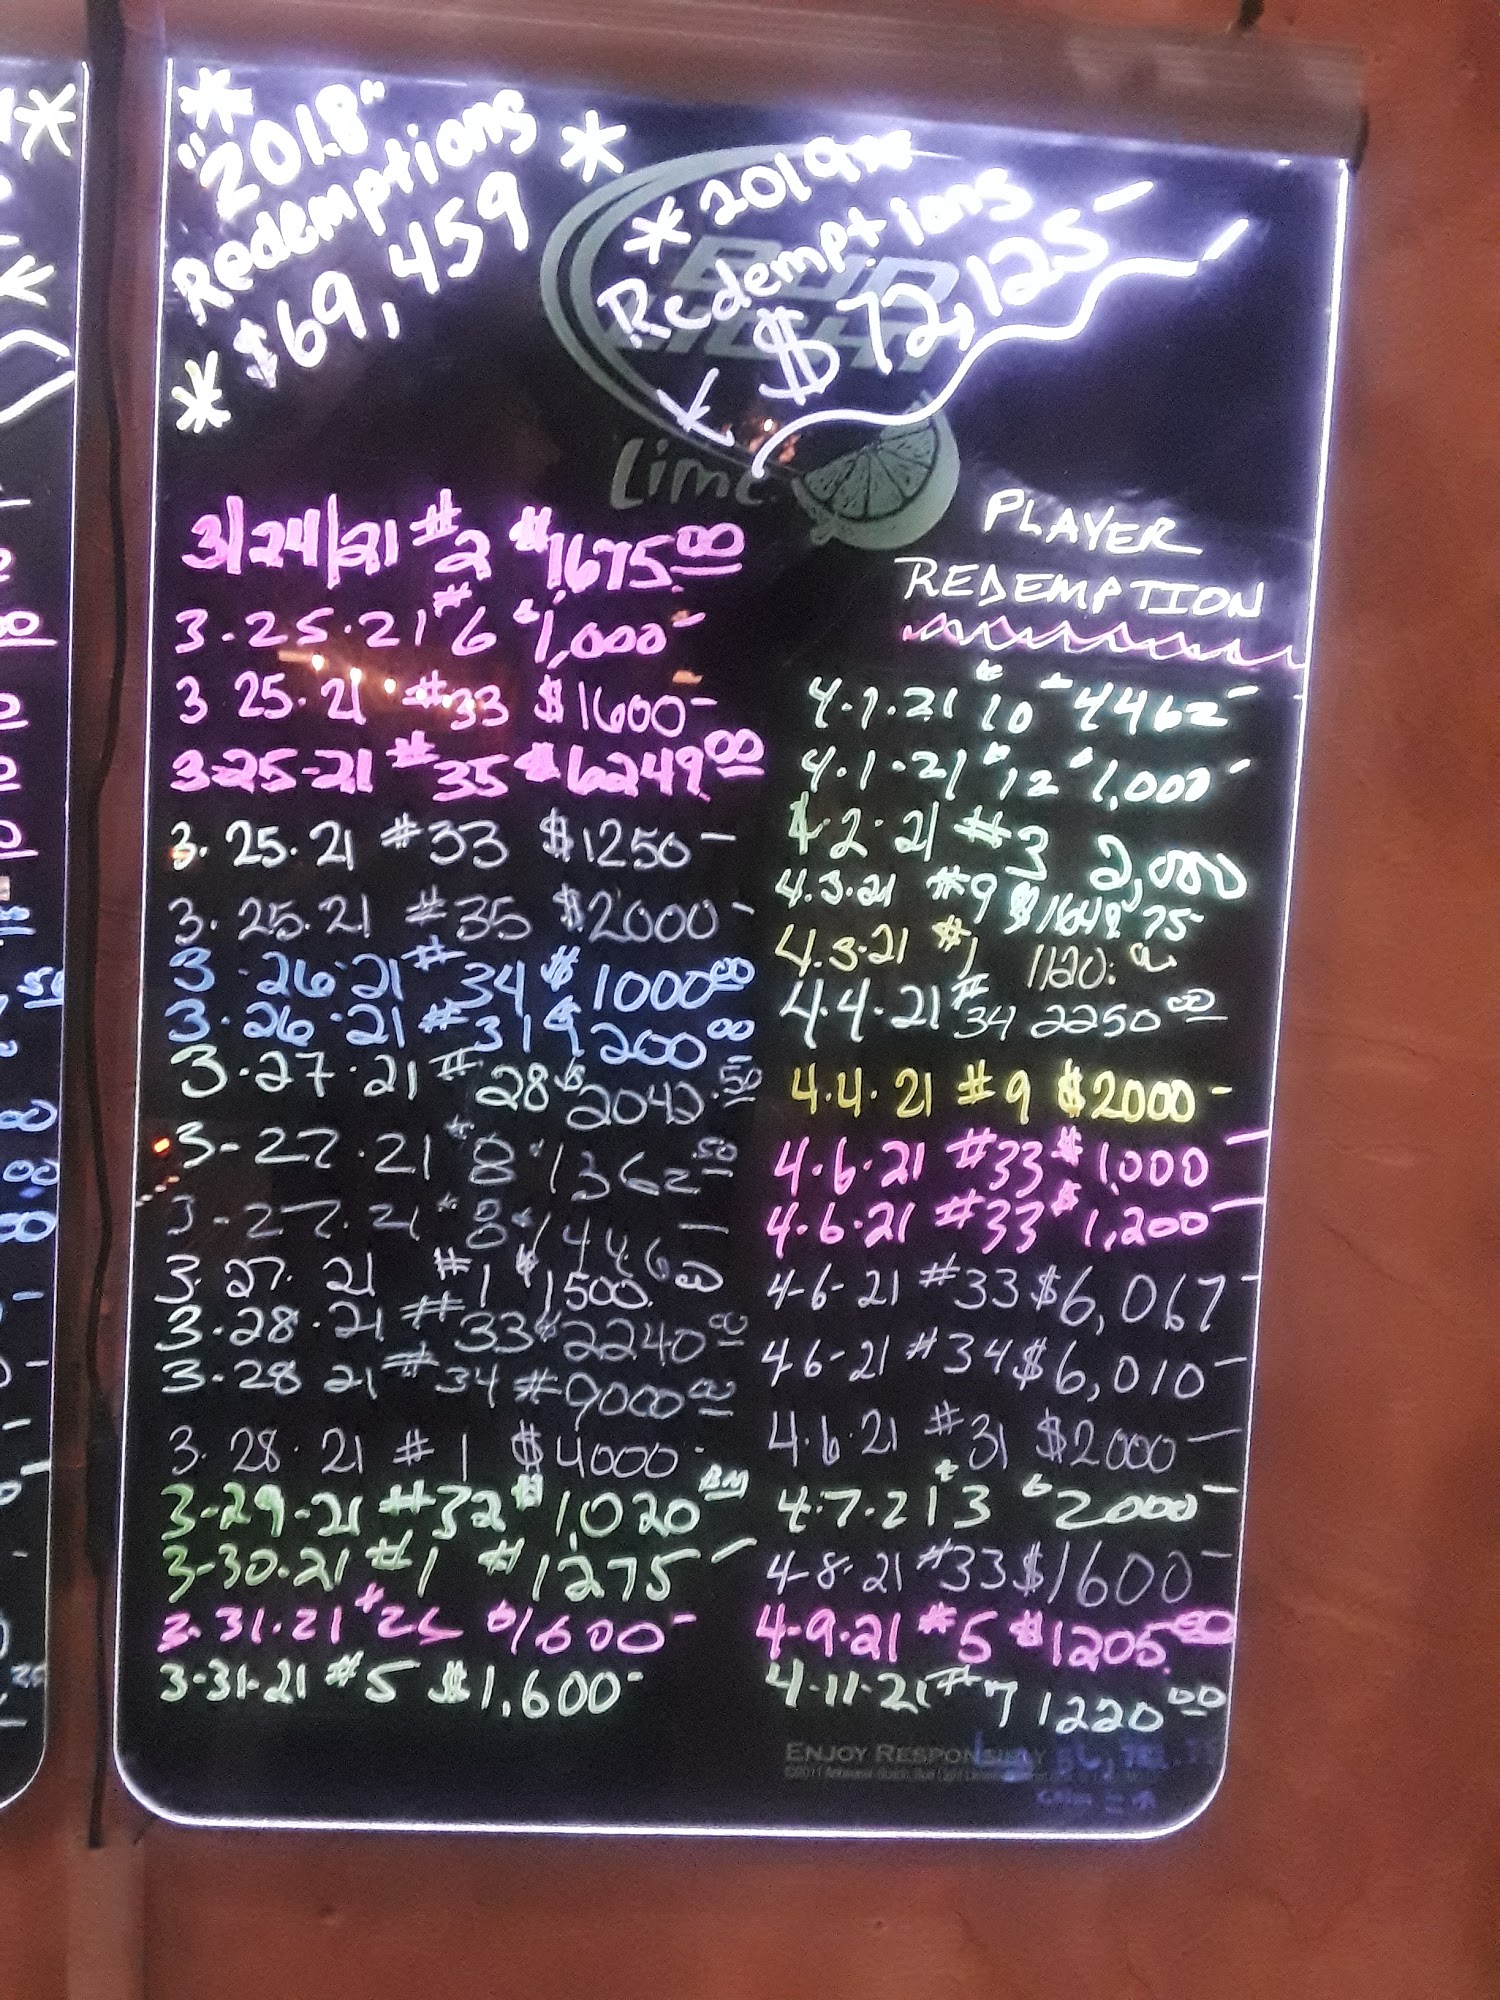 "2018"
Redemptions
$69,459
2019
Redemptions
$72,125-
BUD
LIGHT
Lime
3/24/21 #2 $1675.00
3.25.21 #6 $1,000-
3 25.21 #33 $1600-
3-25-21 #35 $6249.00
3.25.21 #33 $1250-
3.25.21 #35 $2000-
3.26.21 #34 $1000.00
3.26.21 #31 $1200.00
3.27.21 #28 $2042.50
3-27.21 #8 $1362.50
3-27.21 #8 $1446-
3.27.21 #1 $1500.00
3.28.21 #33 $2240.00
3.28 21 #34 #9000.00
3.28.21 #1 $4000-
3-29-21 #32 $1,020
3-30.21 #1 #1275-
3.31.21 #26 $1600-
3-31-21 #5 $1,600-
PLAYER
REDEMPTION
4.1.21 #10 $4462-
4.1.21 #12 $1,000-
4.2.21 #3 2,000
4.3.21 #9 $1649.75
4.3.21 #1 1120.
4.4.21 #34 2250.00
4.4.21 #9 $2000-
4.6.21 #33 $1,000-
4.6.21 #33 $1,200-
4-6-21 #33 $6,067-
4.6-21 #34 $6,010-
4.6.21 #31 $2000-
4.7.21 #3 $2000-
4-8-21 #33 $1600-
4-9-21 #5 $1205.00
4-11-21 #7 1220.00
ENJOY RESPONSIBLY